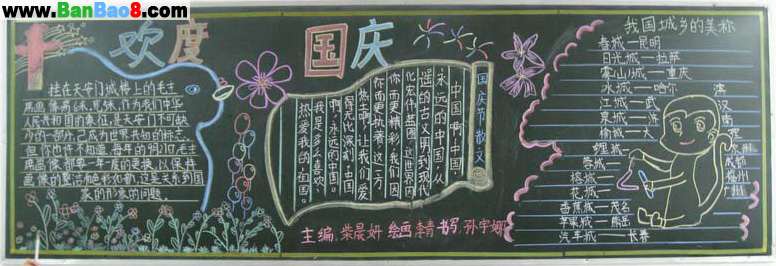 www.BanBao8.com
欢度
国庆
挂在天安门城楼上的毛主
席画像易 作为我们中华
人民共和国的象征,是天安门不可缺
少的一部分,已成为世界共知的标志。
但你也许不知道,每年的9月间毛主
席画像都要一年一度的更换,以保持
画像的整洁和色彩和 这是关系到国
家的形象的问题。
国庆节散文
中国啊,中国,
永远的中国!从
遥远的古文明到现代
化宏伟蓝图,这世界因
你而更精彩,我们因
你而更执著。这一方
热土啊,让我们爱
得无比深刻,中国
啊,永远的中国。
我是多么喜欢,
热爱我的中国。
主编:柴晨妍 绘画:李青 书写:孙宇娜
我国城乡的美称
春城—昆明
日光城—拉萨
雾山城—重庆
水城—哈尔滨
江城—武汉
泉城—济南
榆城—大理
鲤城—泉州
蓉城—成都
榕城—福州
花城—广州
香蕉城—茂名
苹果城—熊岳
汽车城—长春